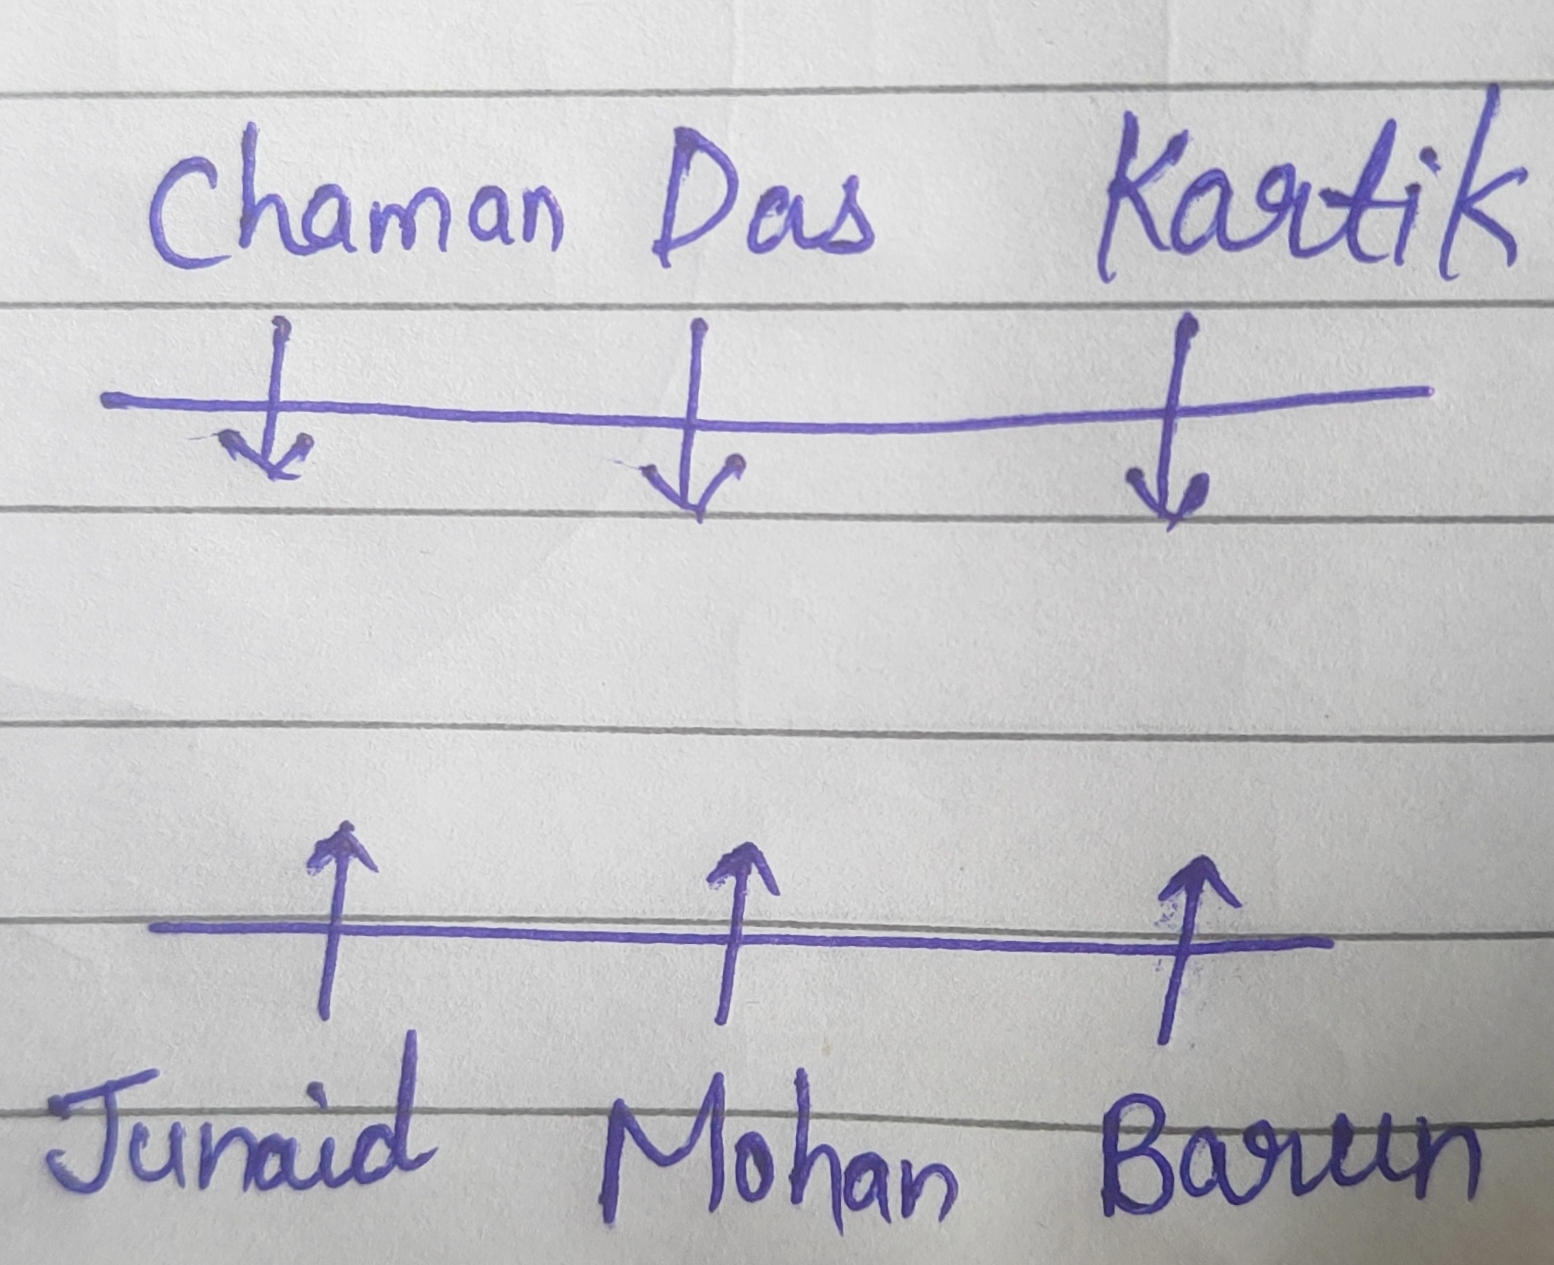 Chaman Das Kartik
Junaid Mohan Barun